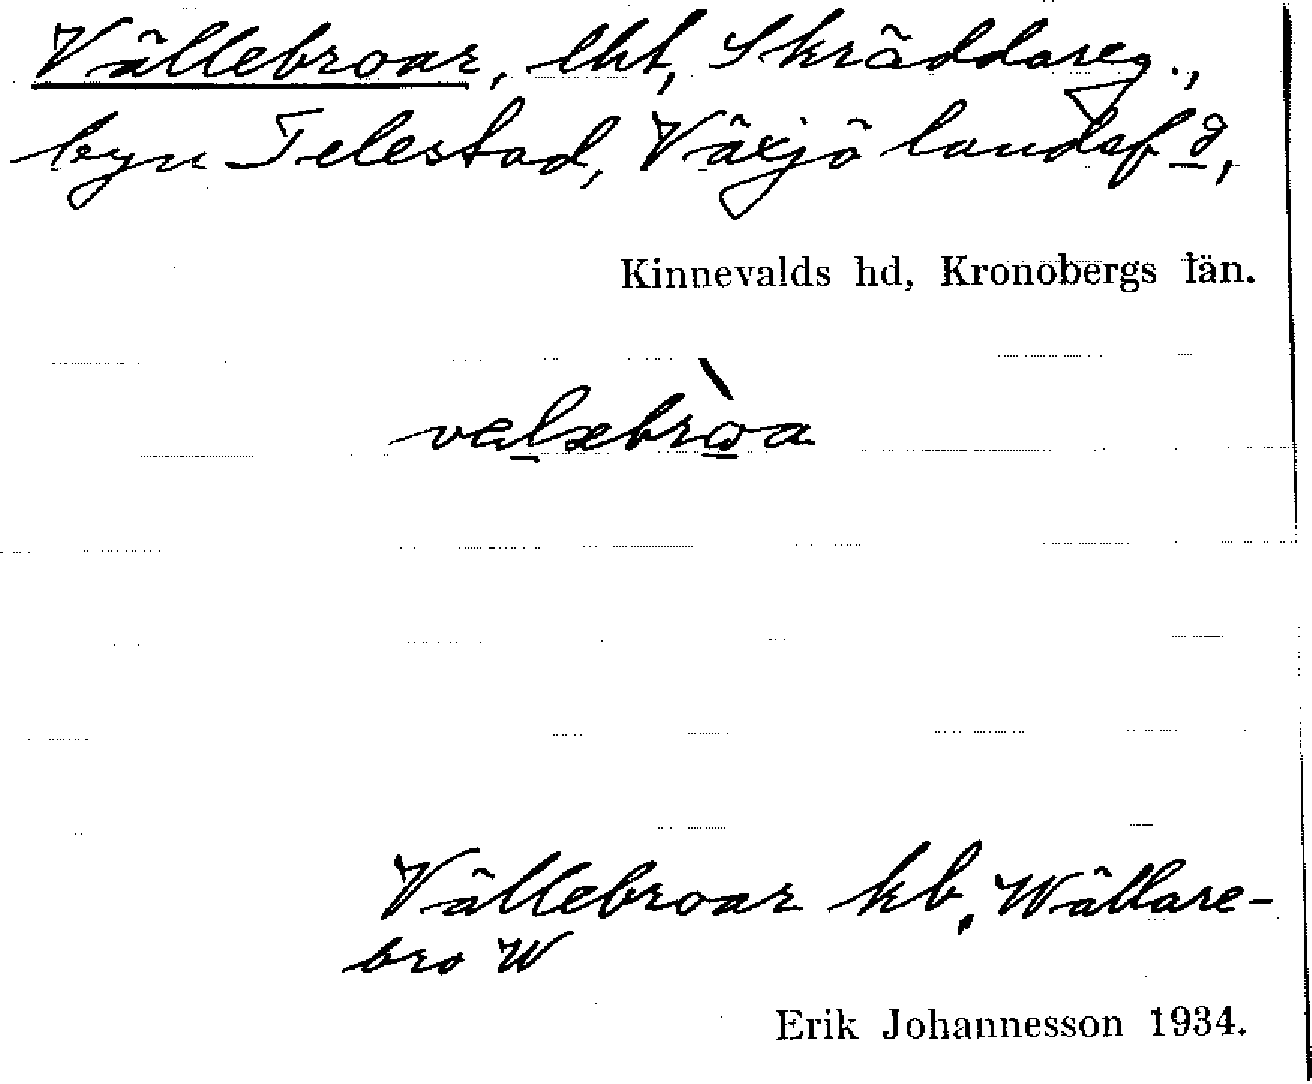 Vällebroar, lht, Skräddareg.,
byn Telestad, Växjö landsf d,
Kinnevalds hd, Kronobergs län.
Vällebroar kb, Wällare-
bro W
Erik Johannesson 1934.